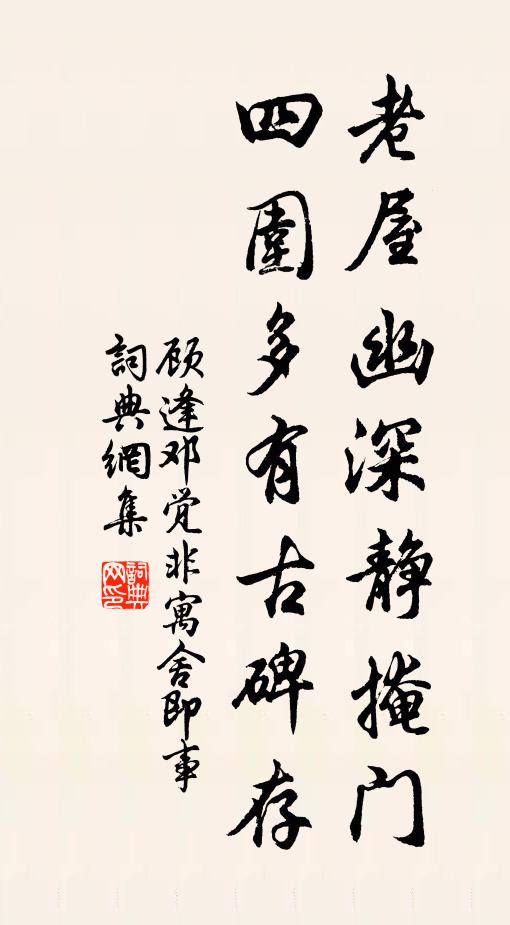 老屋幽深静掩门
四圍多有古碑存
顾逢邓觉非寓舍即事
詞典網集
詞典网印